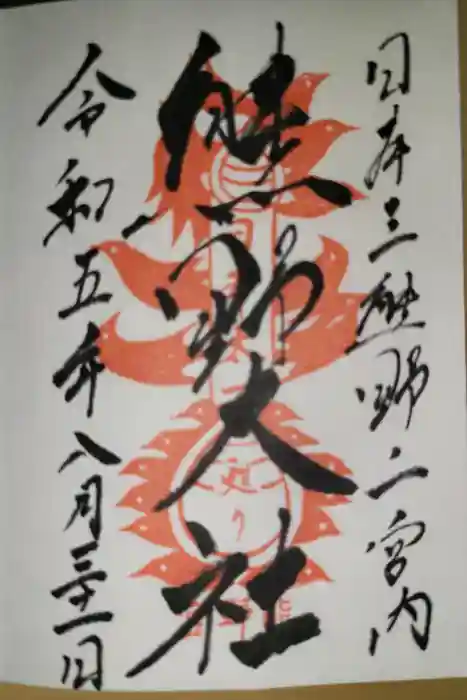 日本三熊野二宮内
熊野大社
令和五年八月三十一日